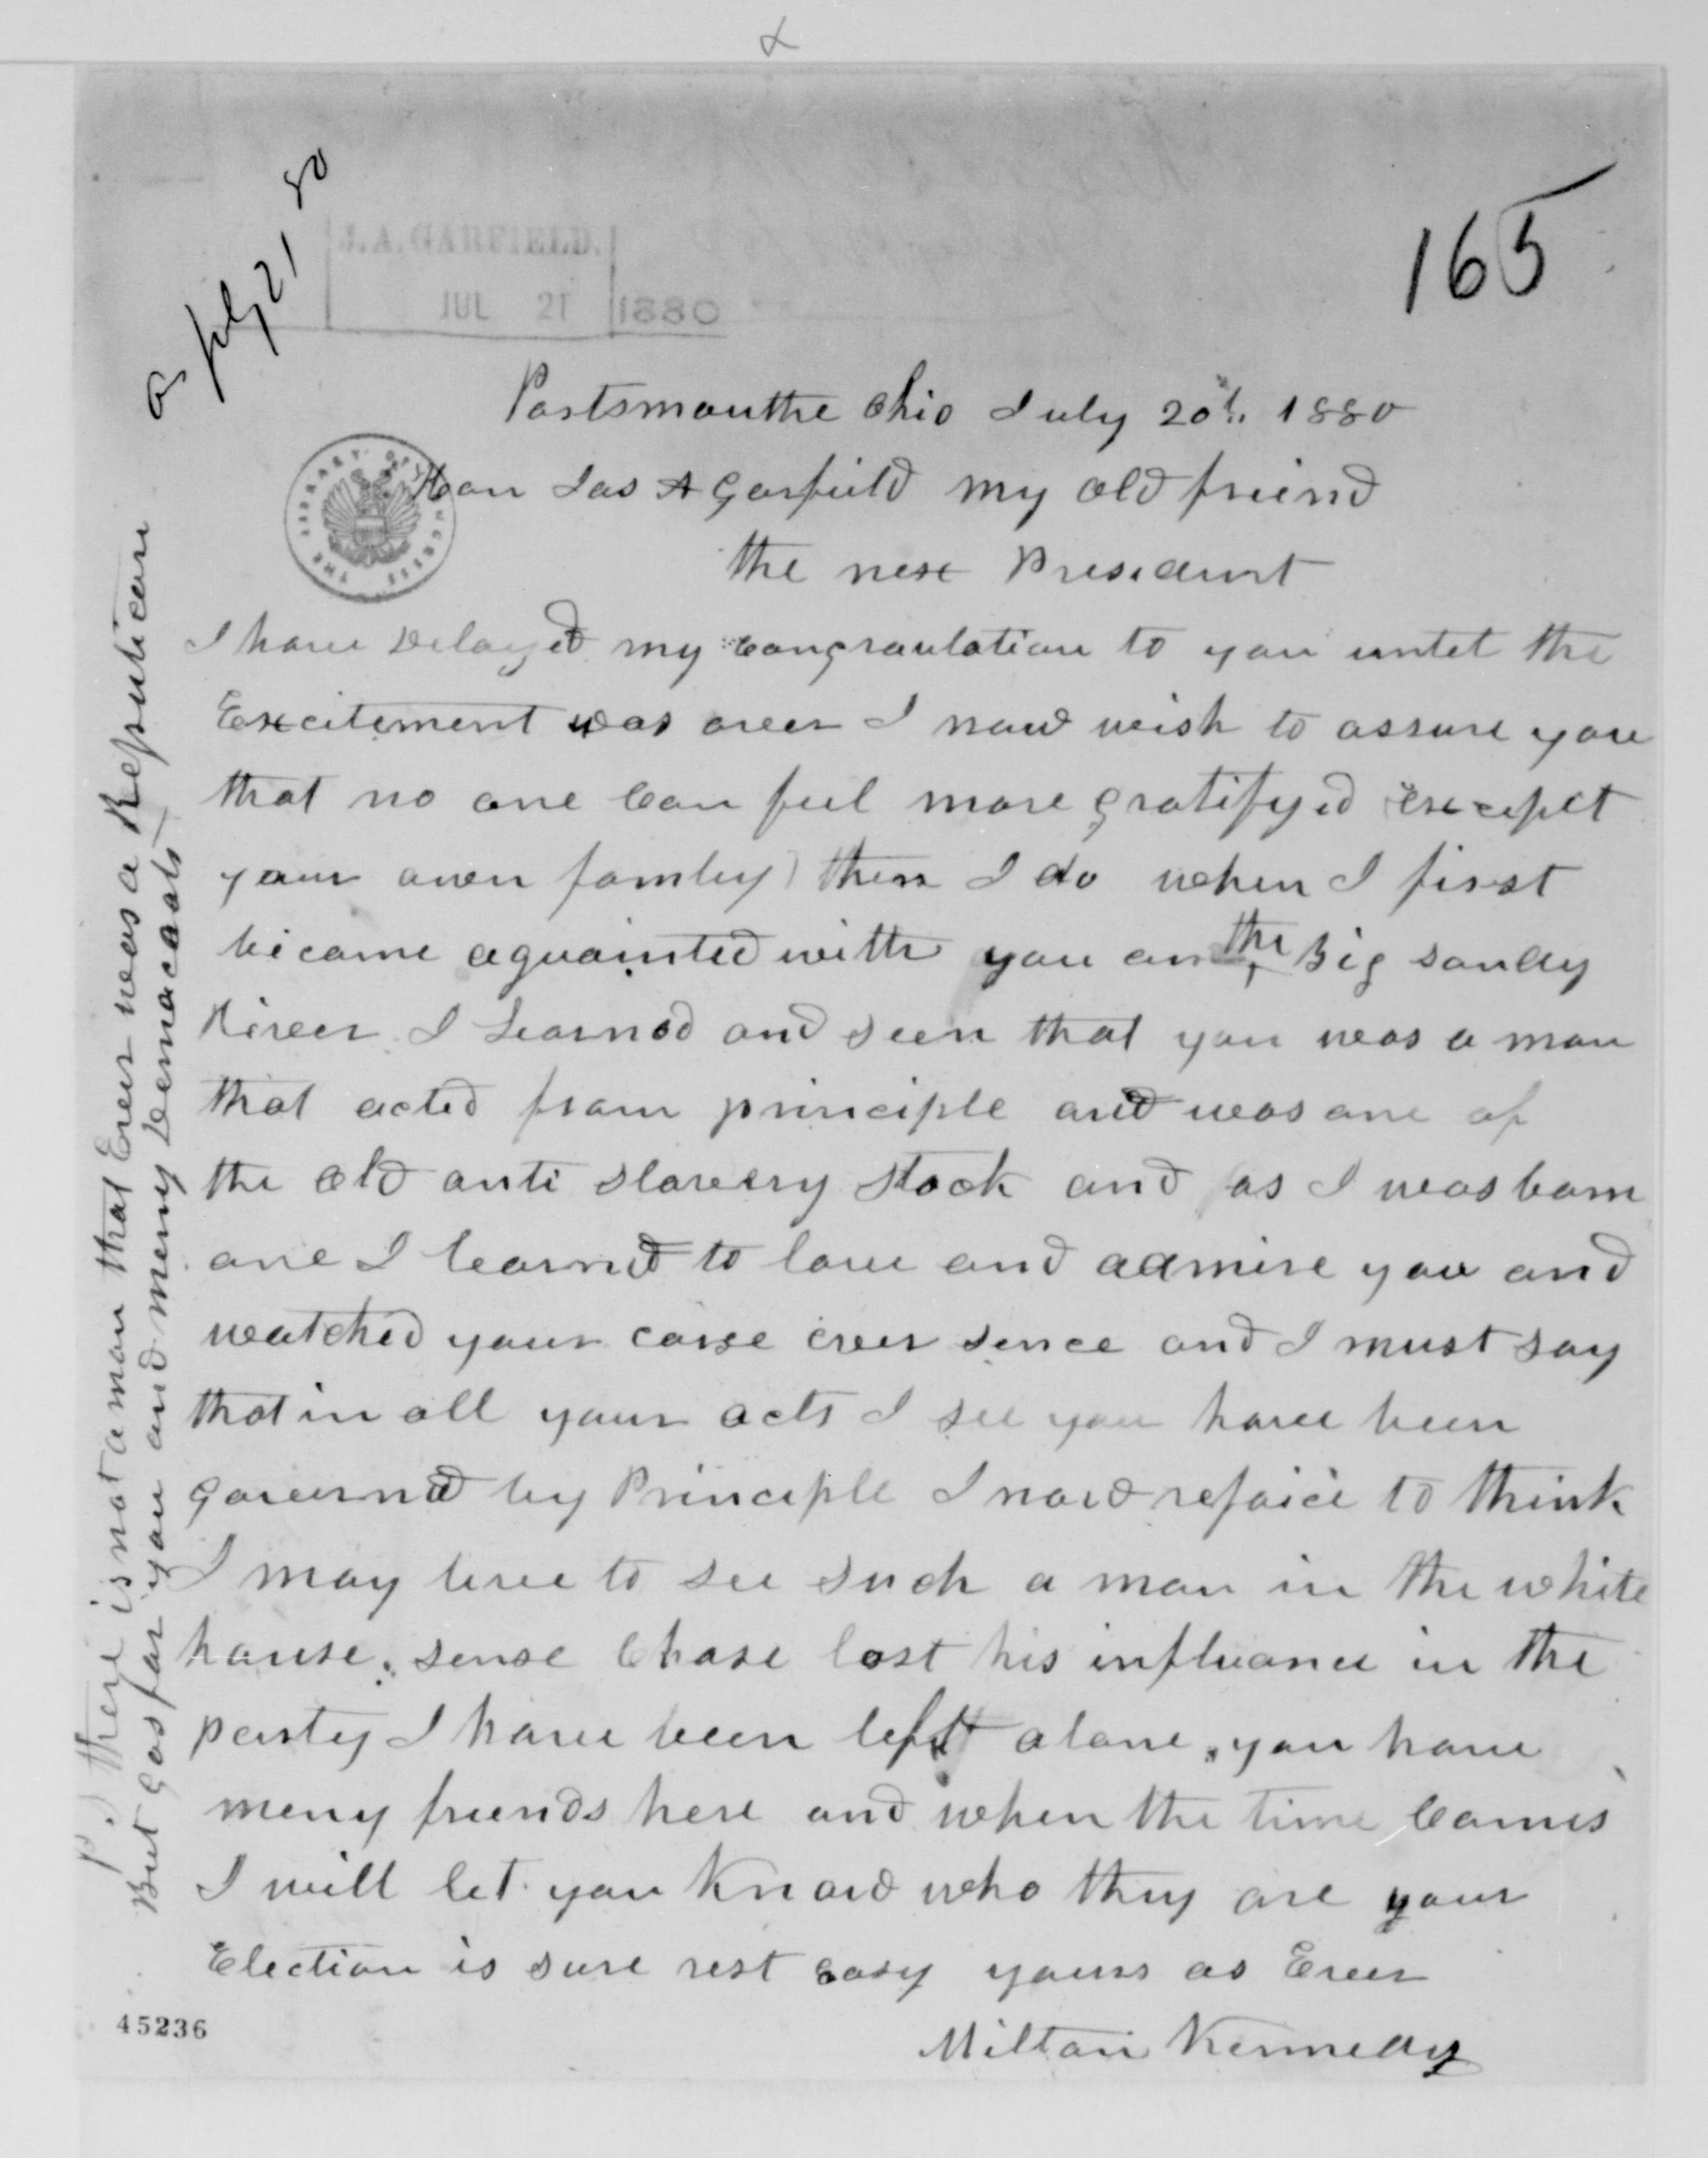 165
as July 21 80
J. A. GARFIELD.
JUL 21 1880
Portsmouthe Ohio July 20th 1880
THE LIBRARY OF CONGRESS
Hon Jas A Garfield my old friend
the nex President
I have Delayed my Congraulation to you untel the
Excitement was over I now wish to assure you
that no one Can feel more gratifyed except
your own famley) then I do when I first
became aquainted with you on the Big sandy
River I Learned and seen that you was a man
that acted from principle and was one of
the old anti slavery stock and as I was born
one I learned to love and admire you and
watched your corse ever sence and I must say
that in all your acts I see you have been
governed by Principle I now rejoice to think
I may live to see such a man in the white
house. sense Chase lost his influance in the
party I have been left alone. you have
meny friends here and when the time Comes
I will let you Know who they are your
Election is sure rest easy yours as Ever
Milton Kennedy
P.S there is not a man that Ever was a Republican
But Gos for you and meny Demacoats
45236